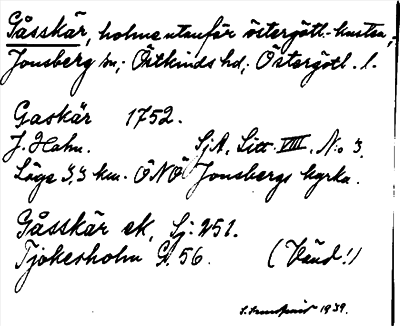 Gåsskär, holme utanför östergötl. kusten,
Jonsberg sn; Östkinds hd; Östergötl. l.
Gaskär 1752.
J. Hahn. Sj.A. Litt. VIII, No 3.
Läge 3,3 km. ÖNÖ Jonsbergs kyrka.
Gåsskär ek, Sj. 251.
Tjokesholm G. 56. (Vänd!)
1939.